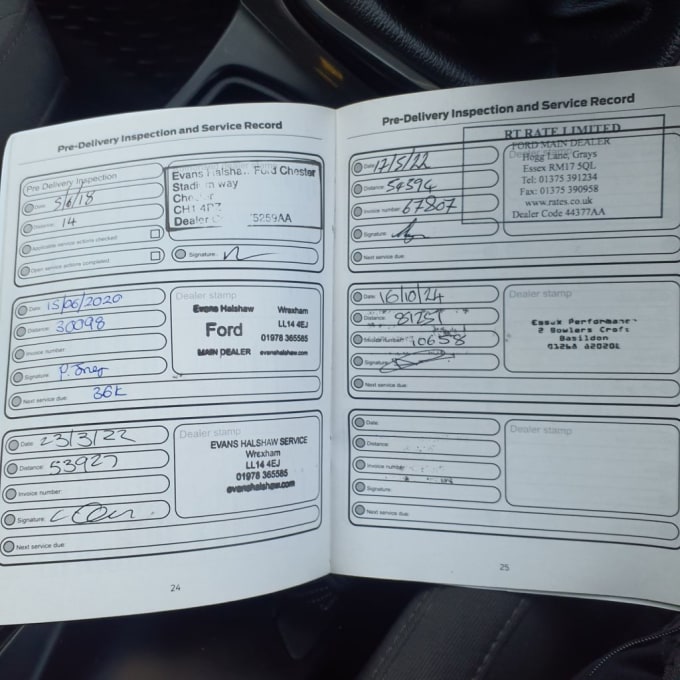 Pre-Delivery Inspection and Service Record
Pre Delivery Inspection
Date: 5/6/18
Distance: 14
Applicable service actions checked:
Open service actions completed:
Evans Halshaw Ford Chester
Stadium way
Chester
CH1 4
Dealer 5259AA
Signature:
Date: 15/06/2020
Distance: 30098
Invoice number:
Signature: P. Jones
Next service due: 36K
Dealer stamp
Evans Halshaw Wrexham
Ford LL14 4EJ
01978 365585
MAIN DEALER evanshalshaw.com
Date: 23/3/22
Distance: 53927
Invoice number:
Signature:
Next service due:
Dealer stamp
EVANS HALSHAW SERVICE
Wrexham
LL14 4EJ
01978 365585
evanshalshaw.com
24
Pre-Delivery Inspection and Service Record
Date: 17/5/22
Distance: 54594
Invoice number: 67807
Signature:
Next service due:
RT RATE LIMITED
FORD MAIN DEALER
Hogg Lane, Grays
Essex RM17 5QL
Tel: 01375 391234
Fax: 01375 390958
www.rates.co.uk
Dealer Code 44377AA
Date: 16/10/24
Distance: 81251
Invoice number: 10658
Signature:
Next service due:
Dealer stamp
Essux Performance
2 Bowlers Croft
Basildon
01268
Date:
Distance:
Invoice number:
Signature:
Next service due:
Dealer stamp
25